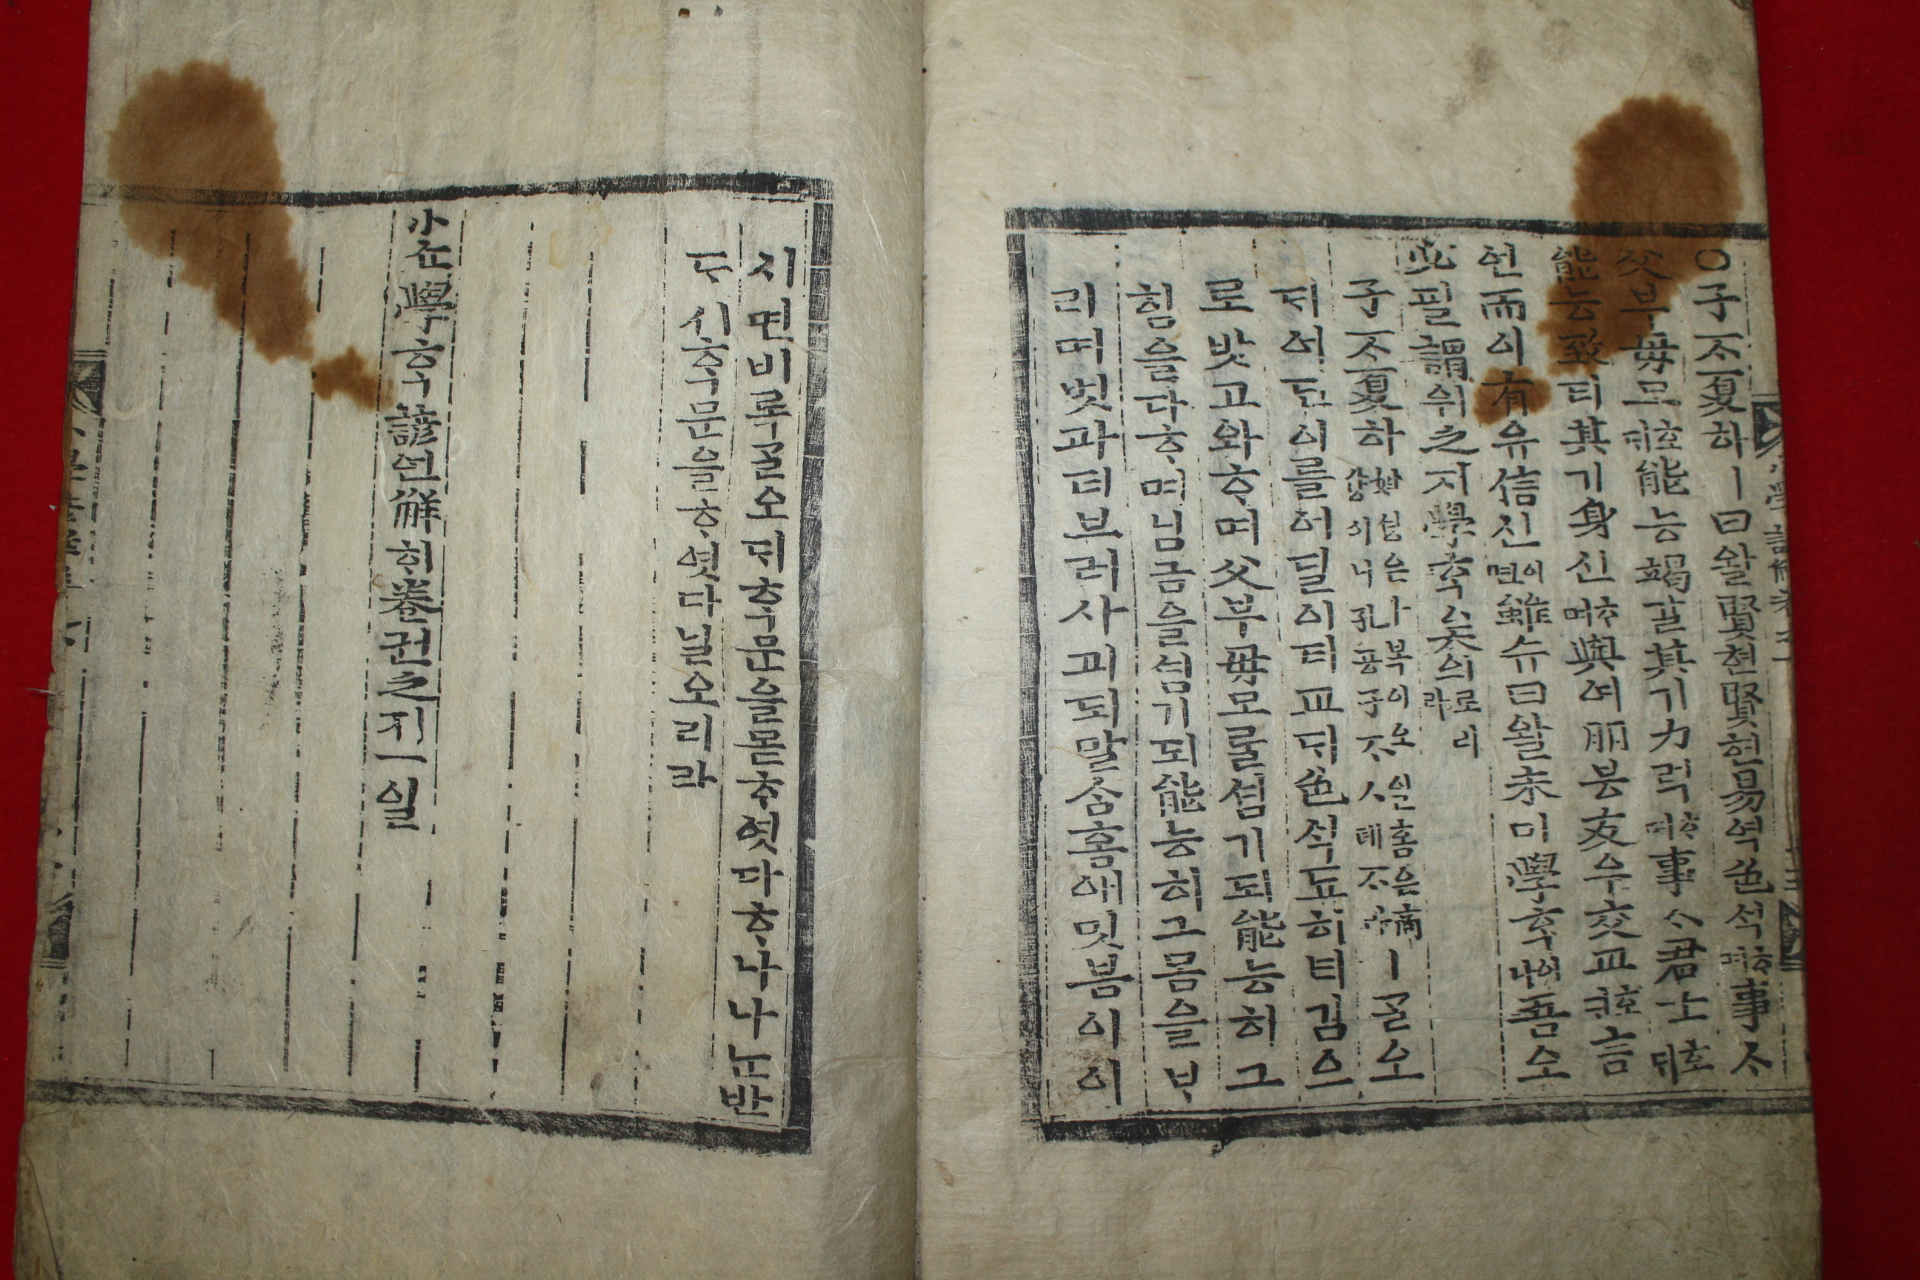 ○子ᄌᆞ夏하ㅣ曰왈賢현賢현易역色ᄉᆡᆨᄒᆞ며事ᄉᆞ
父부母모호ᄃᆡ能능竭갈其기力력ᄒᆞ며事ᄉᆞ君군호ᄃᆡ
能능致티其기身신ᄒᆞ며與여朋붕友우交교호ᄃᆡ言
언而이有유信신이면雖슈曰왈未미學ᄒᆞᆨ이나吾오
必필謂위之지學ᄒᆞᆨ矣의로리라
子ᄌᆞ夏하姓셩은卜복이오일홈은商샹이니孔공子ᄌᆞㅅ뎨ᄌᆞㅣᄀᆞᆯ오
ᄃᆡ어딘이를어딜이티교ᄃᆡ色ᄉᆡᆨ됴히티김으
로밧고와ᄒᆞ며父부母모ᄅᆞᆯ셤기되能능히그
힘을다ᄒᆞ며님금을셤기되能능히그몸을ᄇᆞ
리며벗과티브러사괴되말ᄉᆞᆷ홈애밋븜이이
시면비록ᄀᆞᆯ오ᄃᆡᄒᆞᆨ문을몯ᄒᆞ엿다ᄒᆞ나나ᄂᆞᆫ반
ᄃᆞ시ᄒᆞᆨ문을ᄒᆞ엿다닐오리라
小쇼學ᄒᆞᆨ諺언解ᄒᆡ卷권之지一일